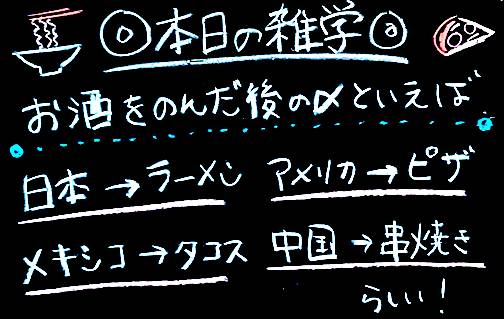 ◎本日の雑学◎
お酒をのんだ後の〆といえば
日本→ラーメン
アメリカ→ピザ
メキシコ→タコス
中国→串焼き
らしい!